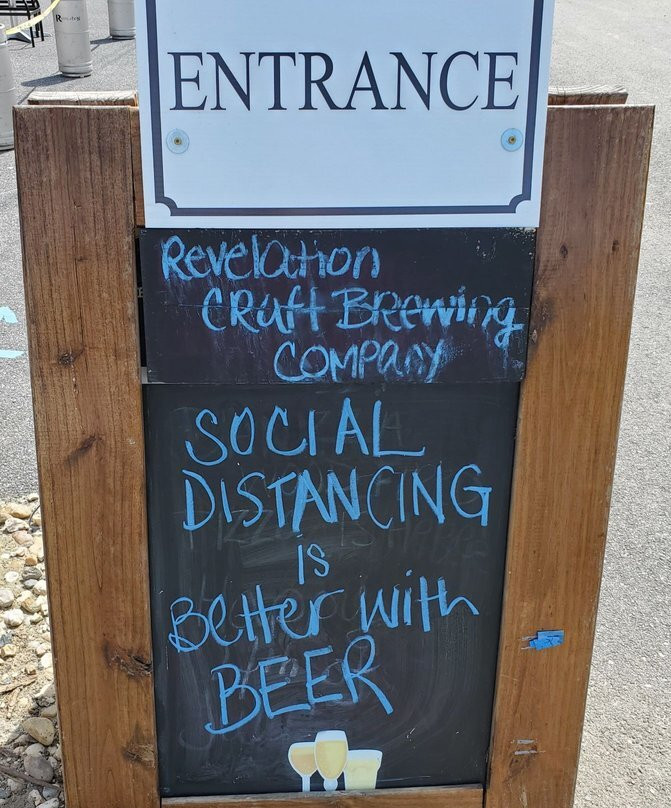 ENTRANCE
Revelation
Craft Brewing
Company
SOCIAL
DISTANCING
is
Better with
BEER